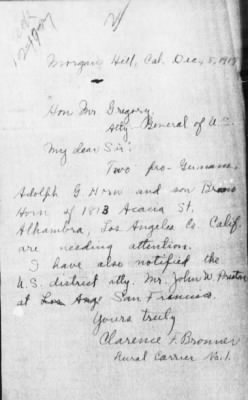 Morgan Hill, Cal. Dec, 5, 1917
Hon Mr. Gregory,
Atty General of U.S.
My dear Sir:
Two pro-Germans,
Adolph G. Horn and son Bruno
Horn of 1813 Acacia St,
Alhambra, Los Angeles Co. Calif.
are needing attention.
I have also notified the
U.S. district atty. Mr. John W. Preston
at Los Ange San Francisco.
Yours truly
Clarence F. Bronner
Rural Carrier No. 1.